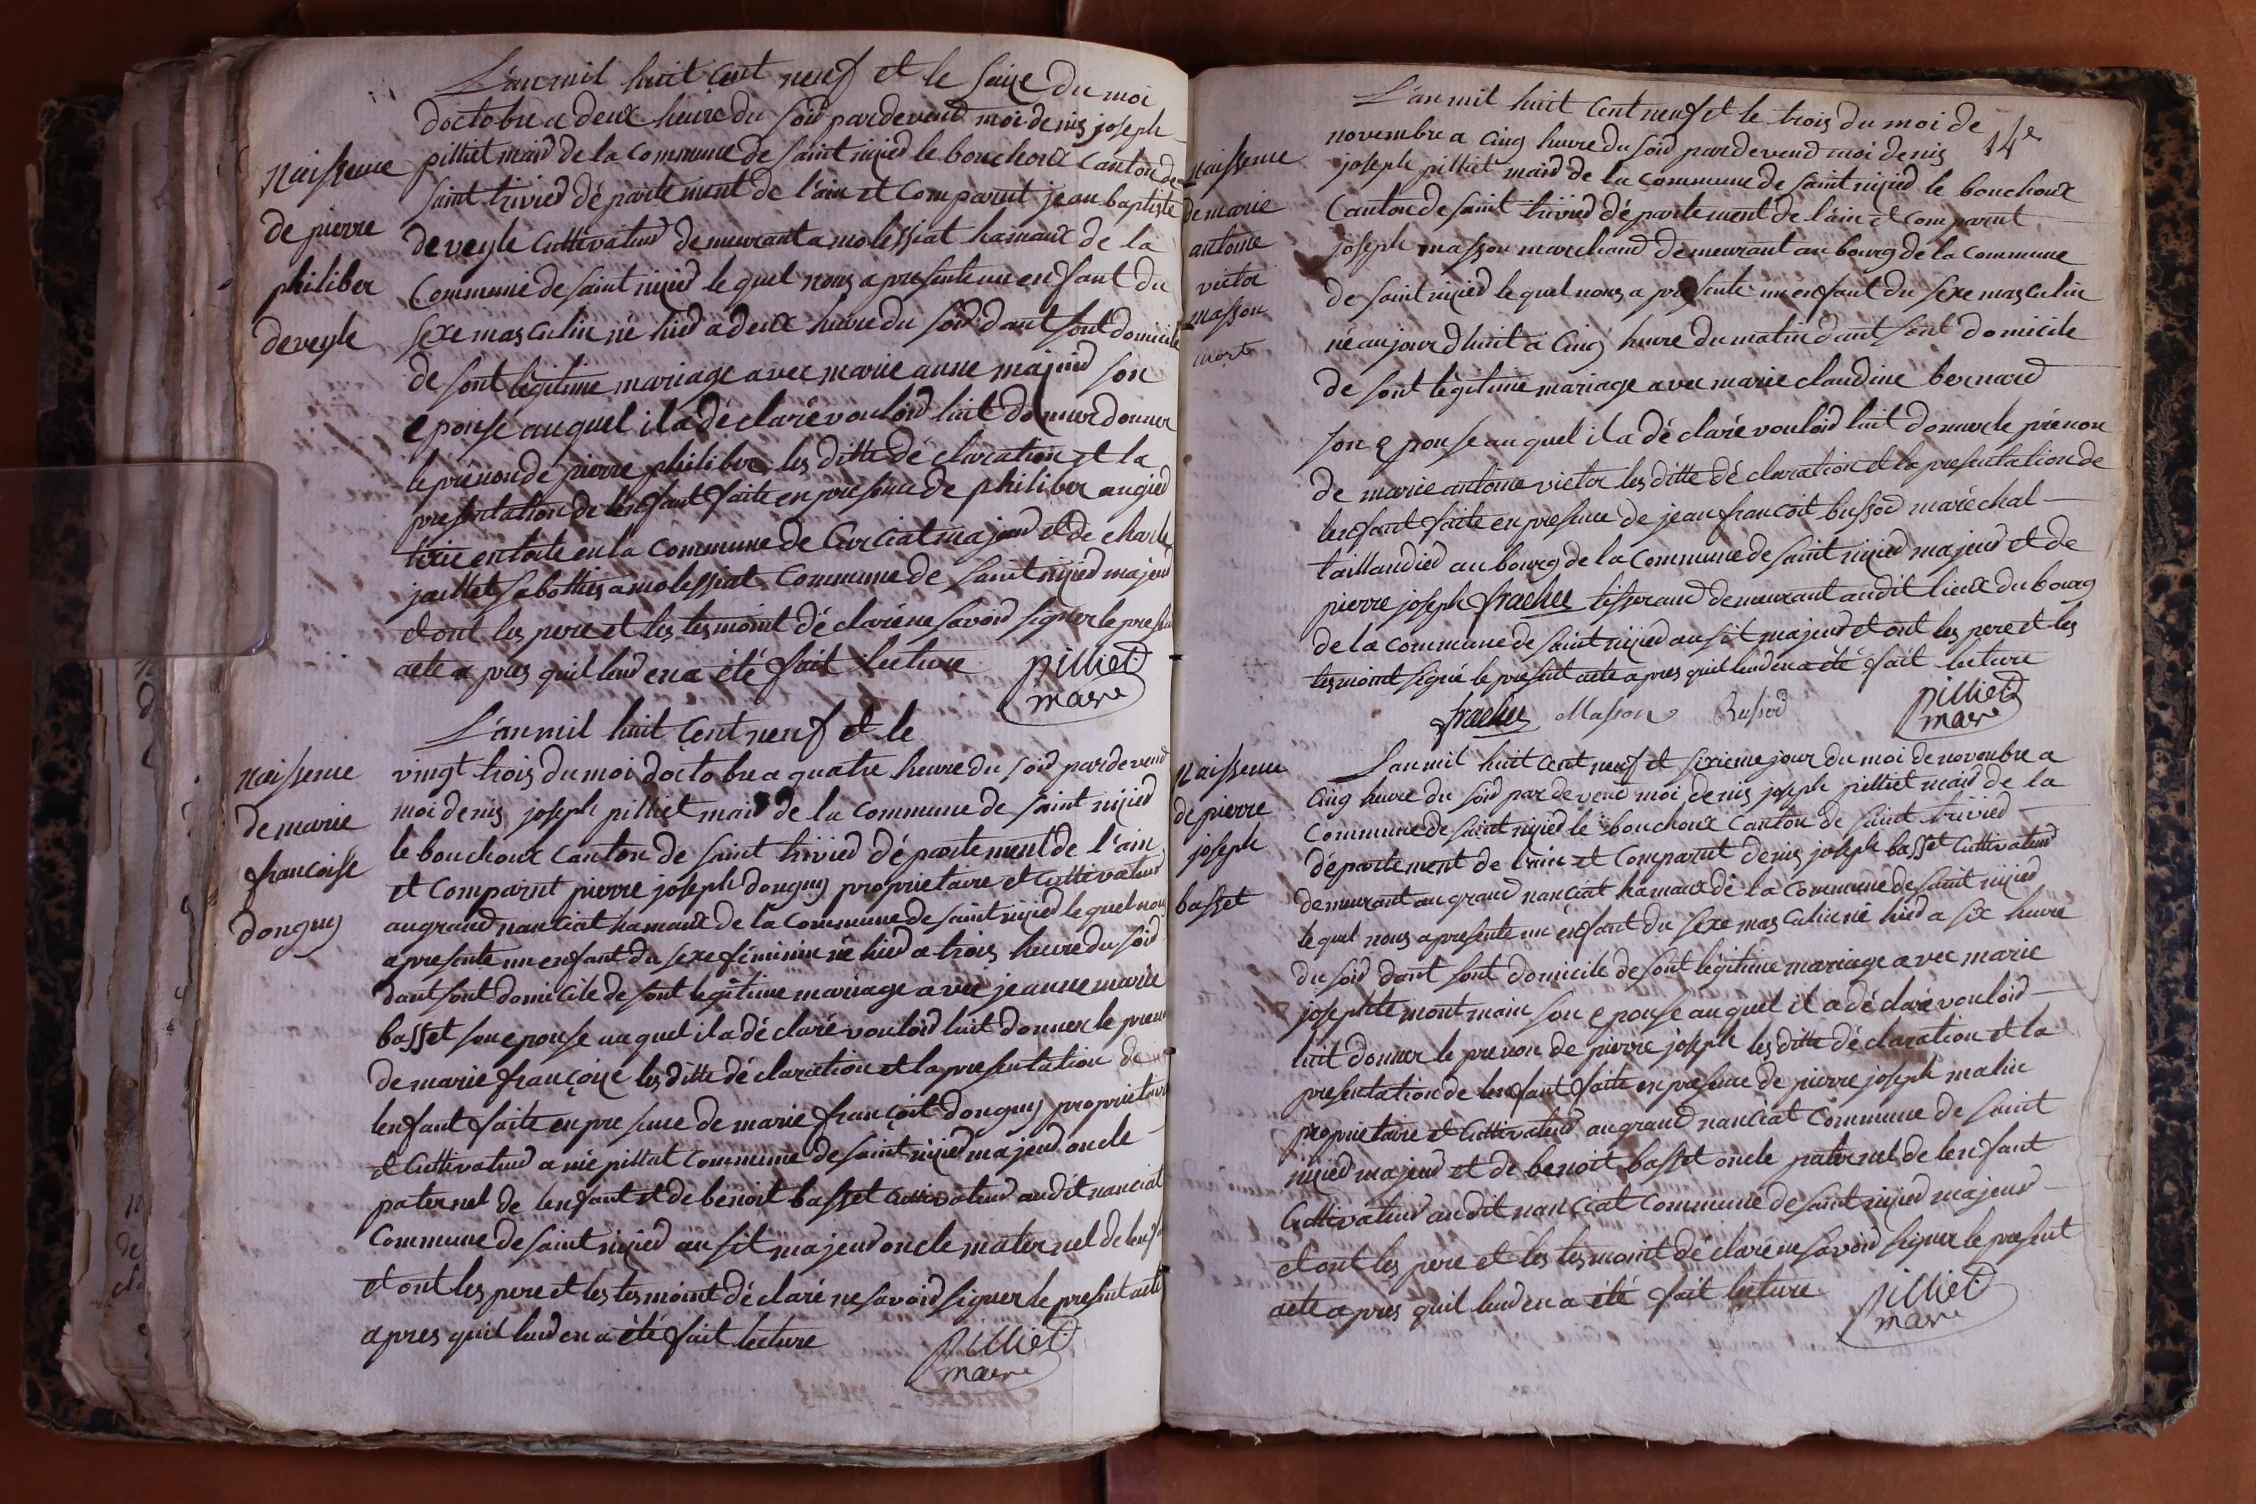 L'an mil huit cent neuf et le saize du moi
doctobre a deux heure du soir pardevend moi denis joseph
pilliet maire de la commune de saint nizied le bouchoux canton de
saint trivied département de l'ain et comparut jean baptiste
deveyle cultivateur demeurant a molessiat hamaux de la
commune de saint nizied le quel nous a presente un enfant du
sexe masculin né hied a deux heure du soir dant sont domicile
de sont legitime mariage avec marie anne majnied son
eponse auquel il a déclaré vouloid luit donner donner
le prénon de pierre philiber les ditte déclaration et la
presentation de lenfant faite en presence de philiber
en la commune de Curciat majeur et de charle
jaillet sabottier a molessiat commune de saint nizied majeur
et ont les pere et les tesmoint déclaré ne savoir signer le presen
acte a pres quil leud en a été fait lecture
pilliet
maire
Naissence
de pierre
philiber
deveyle
L'an mil huit cent neuf et le
vingt trois du moi doctobre a quatre heure du soir pardevend
moi denis joseph pilliet maire de la commune de saint nizied
le bouchoux canton de saint trivied département de l'ain
et comparut pierre joseph donguy proprietaire et cultivateur
au grand nanciat hamaux de la commune de saint nizied le quel nous
a presente un enfant du sexe féminin né hied a trois heure du soir
dant sont domicile de sont legitime mariage avec jeanne marie
basset son eponse auquel il a déclaré vouloid luit donner le prenon
de marie françoise les ditte déclaration et la presentation de
lenfant faite en presence de marie françoit donguy proprietaire
et cultivateur a commune de saint nizied majeur oncle
paternel de lenfant et de benoit basset cultivateur audit nanciat
commune de saint nizied ausit majeur oncle maternel de lenfa
et ont les pere et les tesmoint déclaré ne savoir signer le present acte
apres quil leud en a été fait lecture
pilliet
maire
Naissence
de marie
francoise
donguy
14e
L'an mil huit cent neuf et le trois du moi de
novembre a cinq heure du soir pardevend moi denis
joseph pilliet maire de la commune de saint nizied le bouchoux
canton de saint trivied département de l'ain et comparut
joseph masson marchand demeurant au bourg de la commune
de saint nizied le quel nous a presente un enfant du sexe masculin
né aujourdhuit a cinq heure du matin dant sont domicile
de sont legitime mariage avec marie claudine bernard
son eponse auquel il a déclaré vouloid luit donner le prénon
de marie antoine victor les ditte déclaration et la presentation de
lenfant faite en presence de jean françoit bussod maréchal
taillandied au bourg de la commune de saint nizied majeur et de
pierre joseph frachet tisserand demeurant audit lieux du bourg
de la commune de saint nizied ausit majeur et ont les pere et les
tesmoint signé le present acte apres quil leud en a été fait lecture
frachet Masson Bussod pilliet
maire
Naissence
de marie
antoine
victor
masson
morte
L'an mil huit cent neuf et sixieme jour du moi de novembre a
cinq heure du soir pardevend moi denis joseph pilliet maire de la
commune de saint nizied le bouchoux canton de saint trivied
département de l'ain et comparut denis joseph basset cultivateur
demeurant au grand nanciat hamaux de la commune de saint nizied
le quel nous a presente un enfant du sexe masculin né hied a six heure
du soir dant sont domicile de sont legitime mariage avec marie
josephte montmain son eponse auquel il a déclaré vouloid
luit donner le prenon de pierre joseph les ditte déclaration et la
presentation de lenfant faite en presence de pierre joseph malin
proprietaire et cultivateur au grand nanciat commune de saint
nizied majeur et de benoit basset oncle paternel de lenfant
cultivateur audit nanciat commune de saint nizied majeur
et ont les pere et les tesmoint déclaré ne savoir signer le present
acte apres quil leud en a été fait lecture
pilliet
maire
Naissence
de pierre
joseph
basset